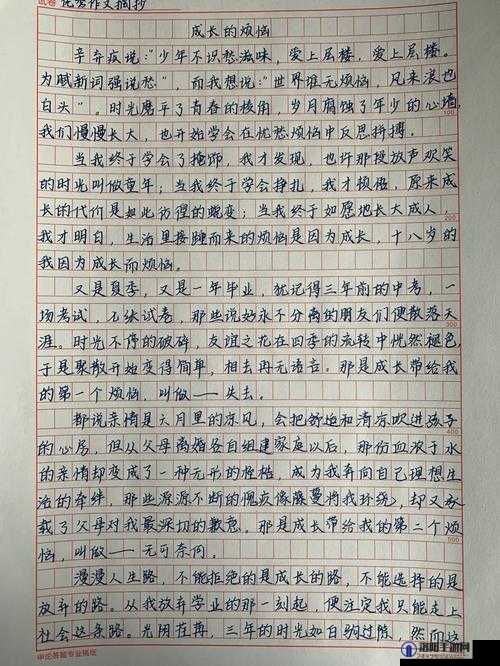 试卷 优秀作文摘抄
成长的烦恼
辛弃疾说：“少年不识愁滋味，爱上层楼，爱上层楼。
为赋新词强说愁”，而我想说：“世界谁无烦恼，风来浪也
白头”，时光磨平了青春的棱角，岁月腐蚀了年少的心墙
100
我们慢慢长大，也开始学会在忧愁烦恼中反思拼搏。
当我终于学会了掩饰，我才发现，也许那段放声欢笑
的时光叫做童年；当我终于学会挣扎，我才模
成长的代价是如此彷徨的蜕变；当我终于如愿地长大成人，
200
我才明白，生活里接踵而来的烦恼是因为成长，十八岁的
我因为成长而烦恼。
又是夏季，又是一年毕业，犹记得三年前的中考，一
场考试，几张试卷，那些说好永不分离的朋友们便散落天
300
涯。时光不停的破碎，友谊之花在四季的流转中恍然褪色
于是聚散开始变得简单，相去再无语言。那是成长带给我
的第一个烦恼，叫做——失去。
都说亲情是六月里的凉风，会把舒适和清凉吹进孩子
400
的心房，但从父母离婚各自组建家庭以后，那份血浓于水
的亲情却变成了一种无形的桎梏，成为我奔向自己理想生
活的牵绊，那些源源不断的愧疚像藤蔓将我环绕，却又承
载了父母对我最深切的歉意。那是成长带给我的第二个烦
500
恼，叫做——无可奈何。
漫漫人生路，不能拒绝的是成长的路，不能选择的是
放弃的路。从我放弃学业的那一刻起，便注定我只能走上
社会这条路。光阴荏苒，三年的时光如白驹过隙，然而这
申论答题专业稿纸